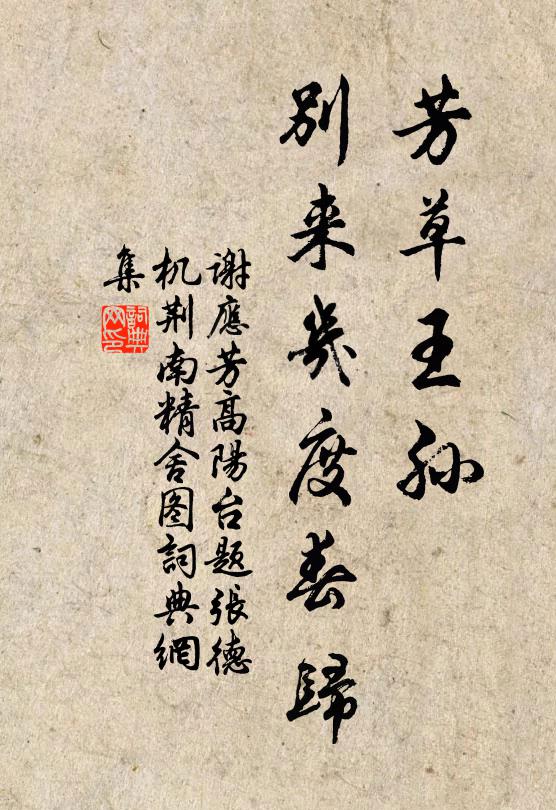 芳草王孙
别来几度春归
謝應芳高陽台题張德
机荆南精舍图詞典網
集
詞典
网印